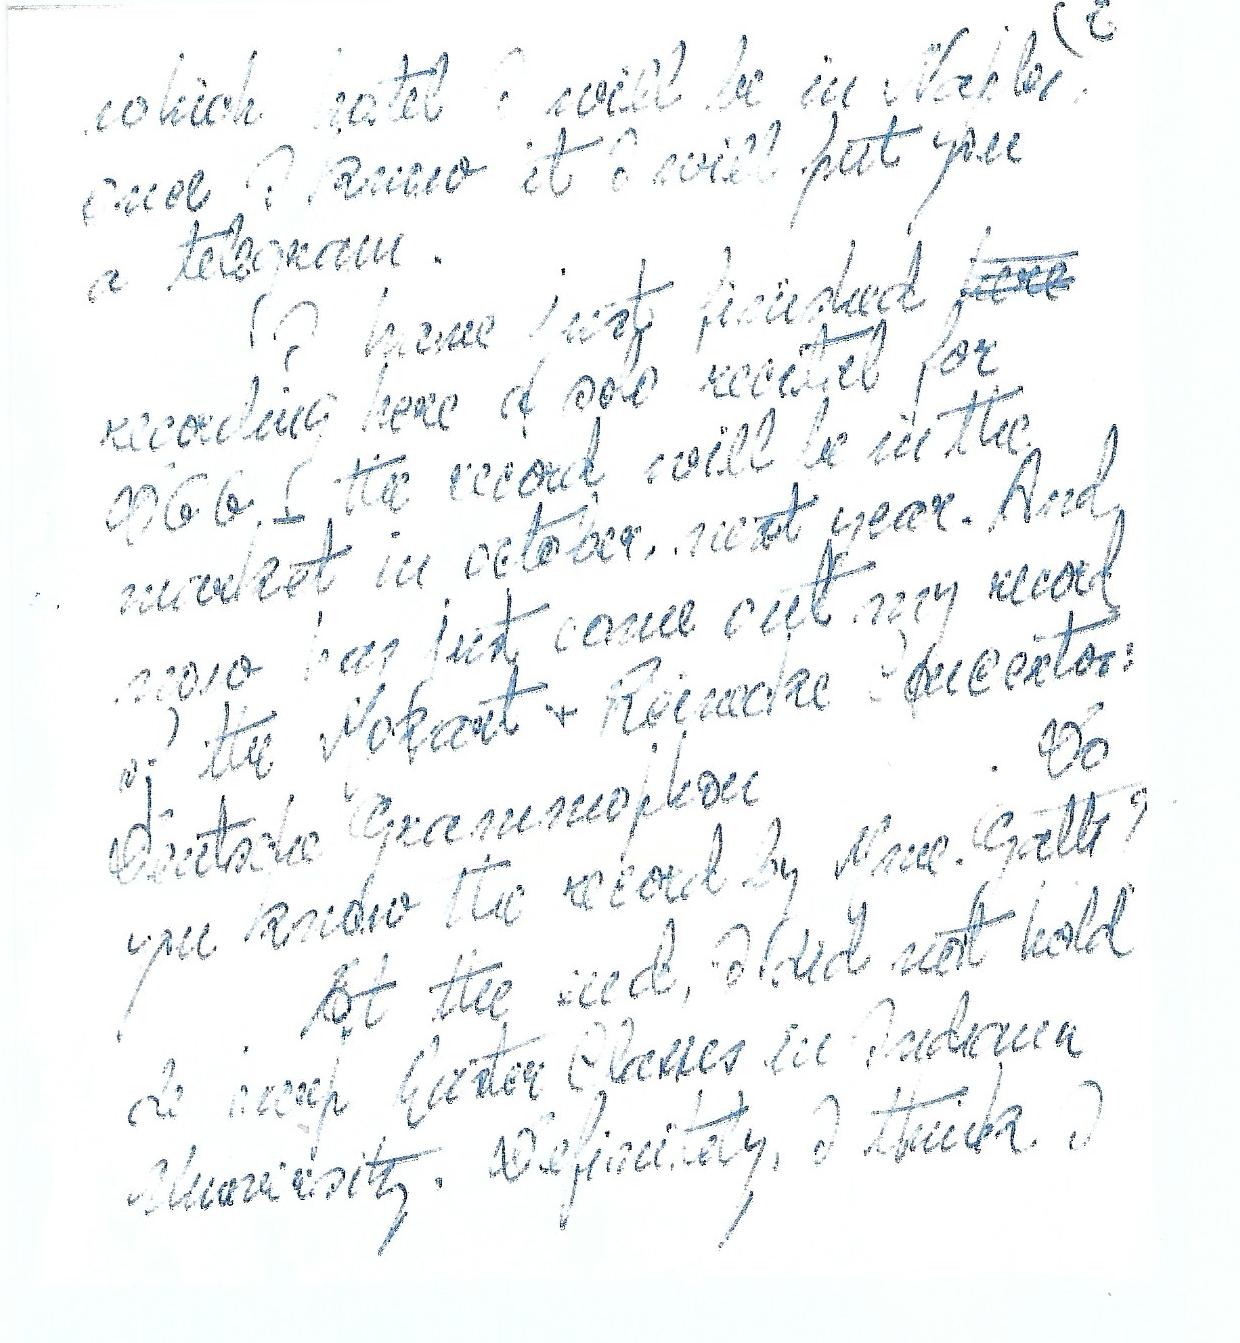 (2
which hotel I will be in Naples.
once I know it I will put you
a telegram.
I have just finished here
recording here a solo recital for
DGG. the record will be in the
market in october, next year. And
now has just come out my record
of the Mozart + Reinecke Concertos:
Deutsche Grammophon. Do
you know the record by Mme. Galli?
At the end, I did not hold
my Master Classes in Indiana
University. Definitely, I think I